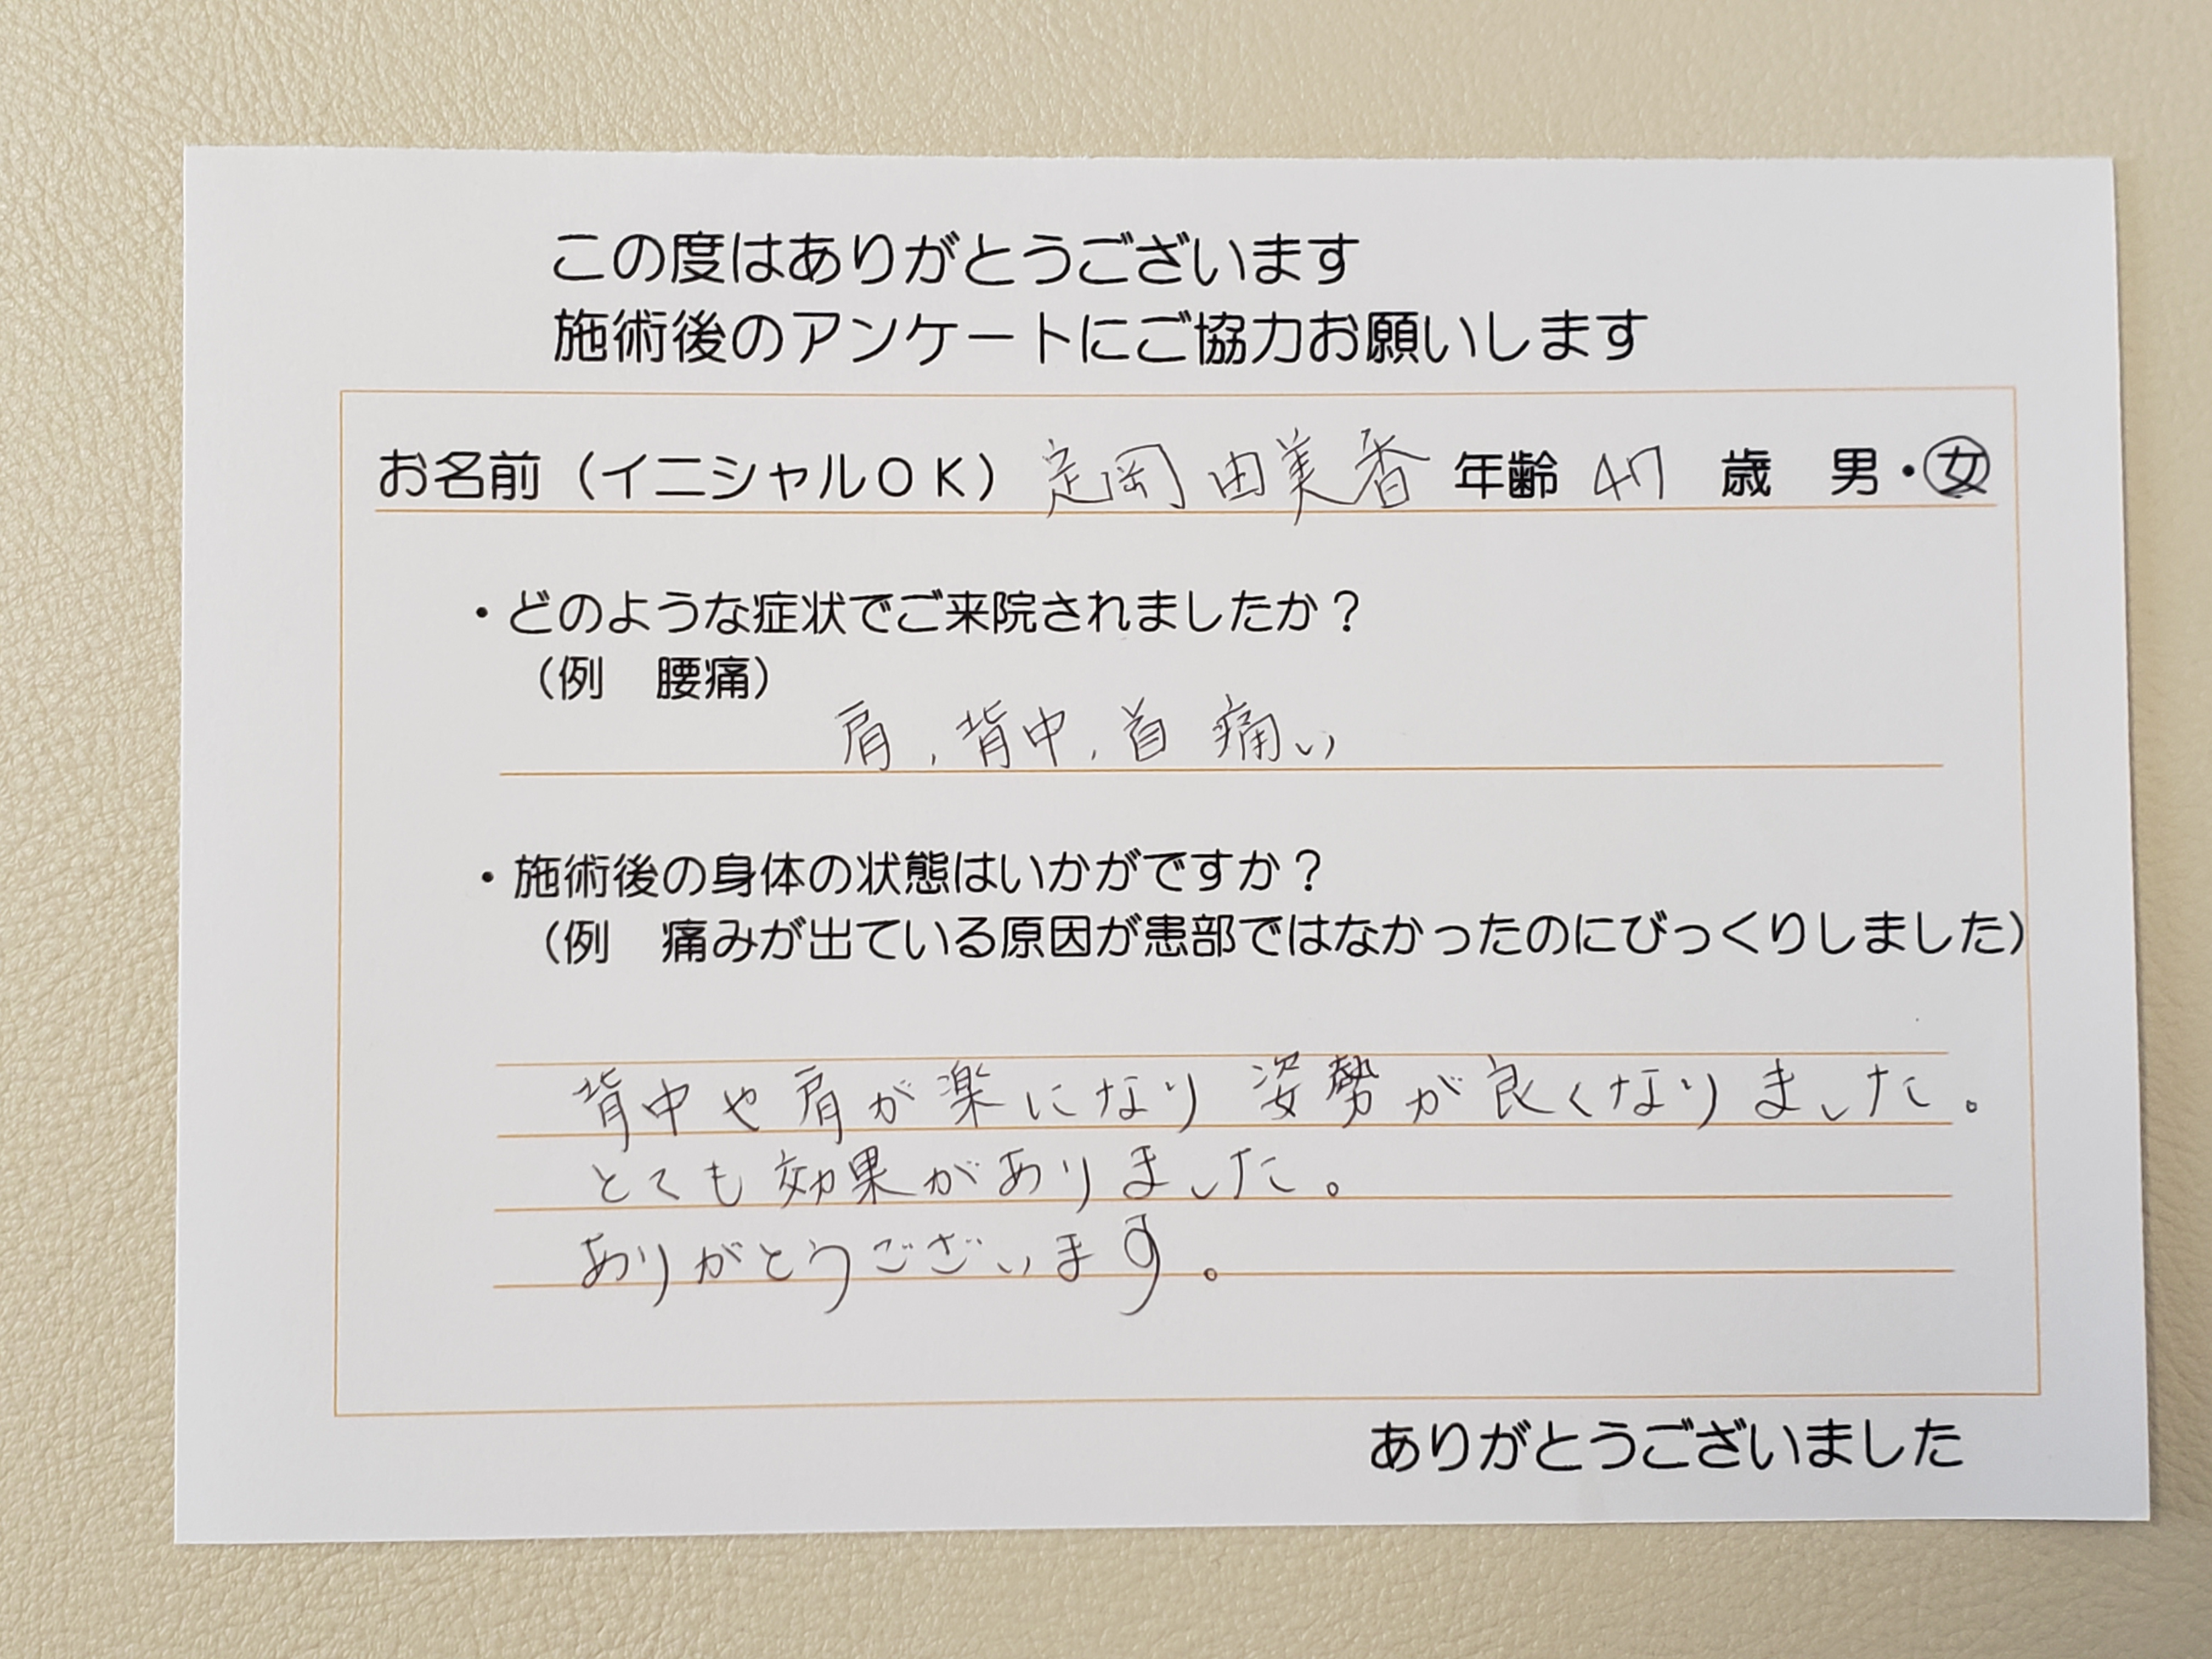 この度はありがとうございます
施術後のアンケートにご協力お願いします
お名前（イニシャルＯＫ） 定岡 由美香 年齢 47 歳 男・女
・どのような症状でご来院されましたか？
（例　腰痛）
肩、背中、首 痛い
・施術後の身体の状態はいかがですか？
（例　痛みが出ている原因が患部ではなかったのにびっくりしました）
背中や肩が楽になり 姿勢が良くなりました。
とても効果がありました。
ありがとうございます。
ありがとうございました